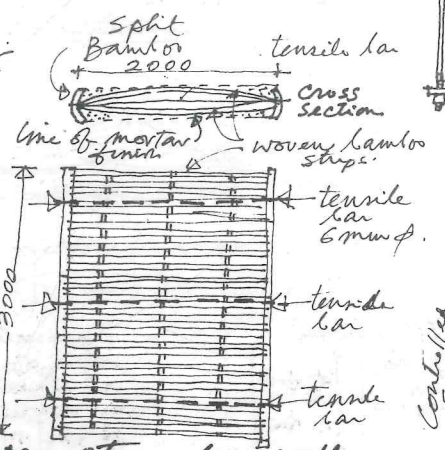 Split
Bamboo
tensile bar
2000
cross
section
line of mortar
finish
woven bamboo
strips.
tensile
bar
6mm φ.
3000
tensile
bar
tensile
bar
Controlled